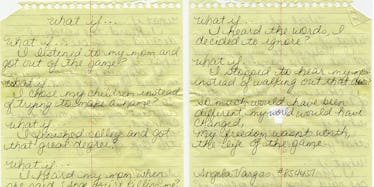 what if...
What if...
I listened to my mom and
got out of the game?
What if...
I chose my children instead
of trying to make a name?
What if...
I finished college and got
that great degree?
What if...
I heard my mom when
she said, "Angie you're killing me"
What if...
I heard the words, I
decided to ignore?
What if...
I stopped to hear my mom
instead of walking out that door
So much would have been
different my world would have
changed,
my freedom wasn't worth,
the life of the game.
Angela Vargas